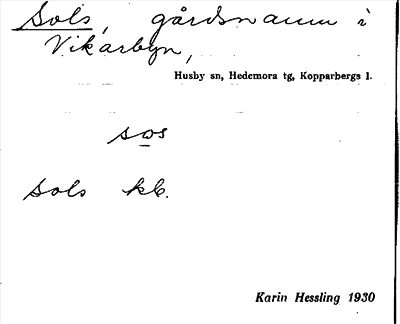 Sols, gårdsnamn i
Vikarbyn,
Husby sn, Hedemora tg, Kopparbergs l.
sos
Sols kb.
Karin Hessling 1930